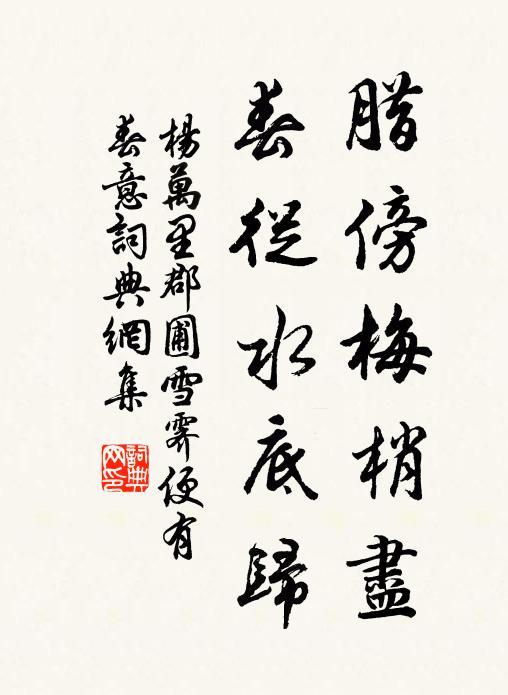 腊傍梅梢盡
春從水底歸
楊萬里郡圃雪霽便有
春意詞典網集
詞典
网印